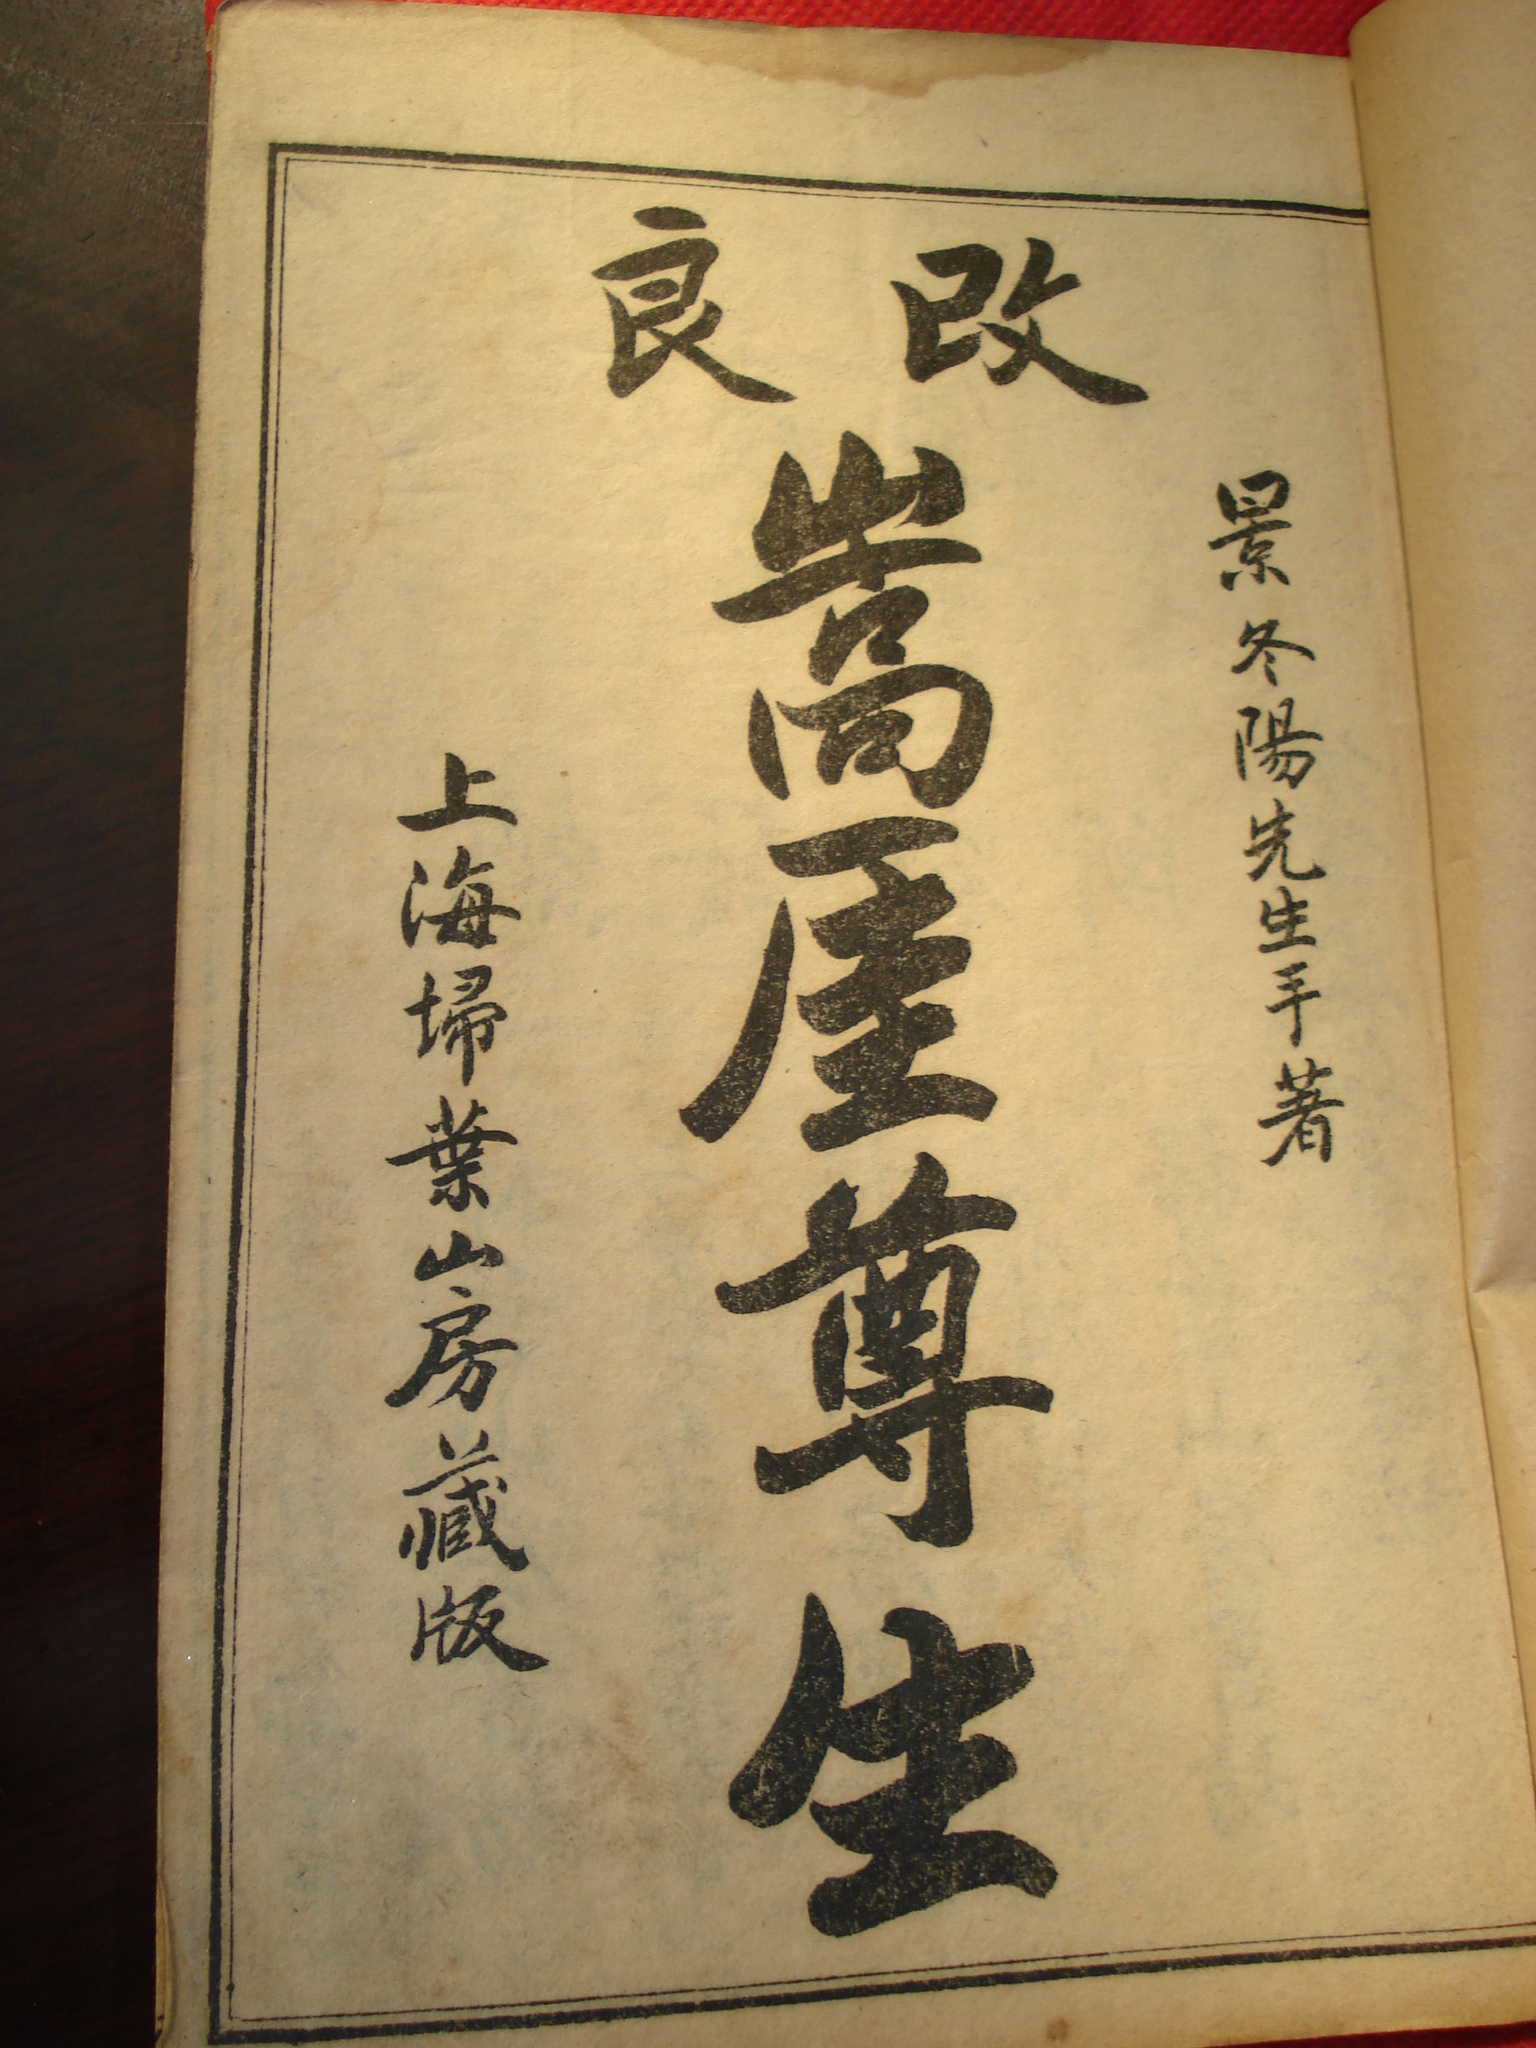 改良
景冬陽先生手著
嵩厓尊生
上海埽葉山房藏版